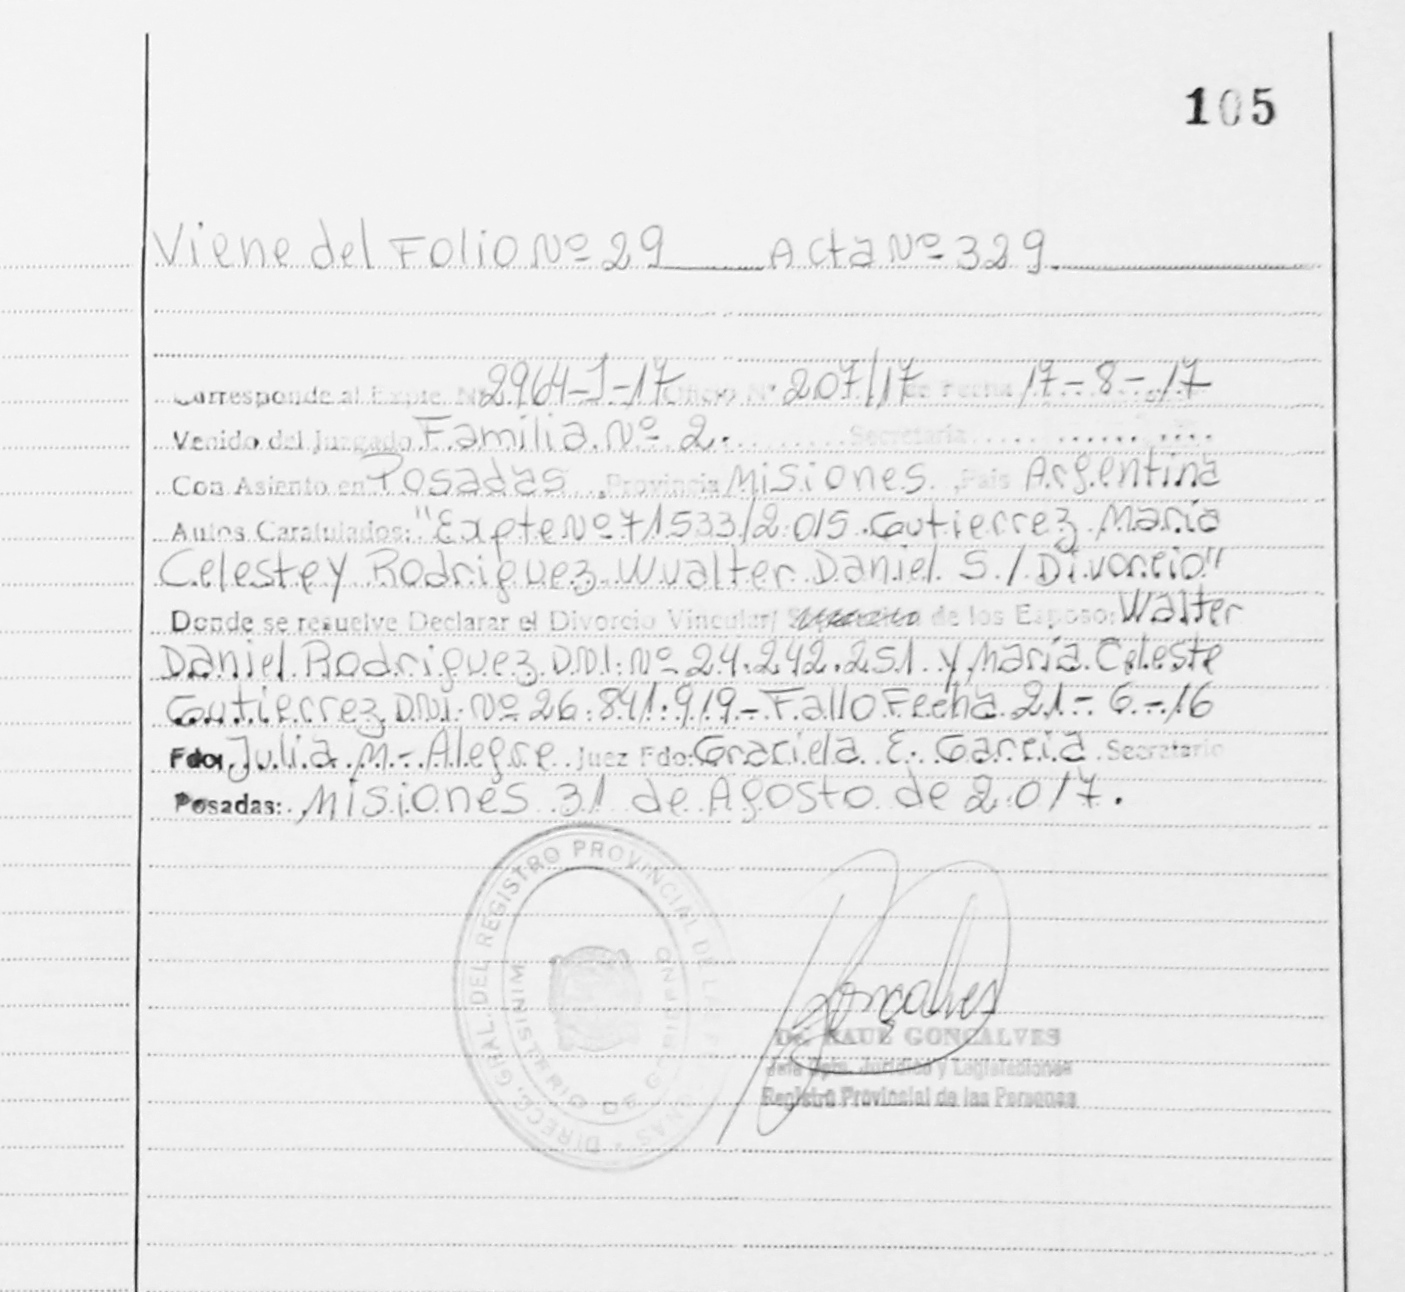 105
Viene del Folio Nº 29 Acta Nº 329
Corresponde al Expte. Nº 2964-J-17 Oficio Nº 207/17 de Fecha 17-8-17
Venido del Juzgado Familia Nº 2. Secretaria
Con Asiento en Posadas, Provincia Misiones, País Argentina
Autos Caratulados: "Expte Nº 71533/2015 Gutierrez María
Celeste y Rodriguez Wualter Daniel S./ Divorcio"
Donde se resuelve Declarar el Divorcio Vincular/ de los Esposo: Walter
Daniel Rodriguez D.N.I. Nº 24.242.251 y María Celeste
Gutierrez D.N.I. Nº 26.841.919 - Fallo Fecha 21-6-16
Fdo: Julia M. Alegre Juez Fdo: Graciela E. Garcia Secretario
Posadas: Misiones 31 de Agosto de 2017.
DIRECC. GRAL. DEL REGISTRO PROVINCIAL DE LAS PERSONAS
MINISTERIO DE GOBIERNO
Gonçalves
Dr. RAUL GONCALVES
Jefe Dpto. Jurídico y Legislaciones
Registro Provincial de las Personas